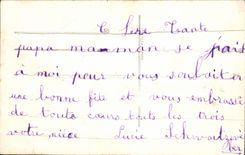 C here Tante
papa maman se joint
à moi pour vous souhaiter
une bonne fête et vous embrasse
de touts cœurs touts les trois
votre nièce Lucie Schwartzer